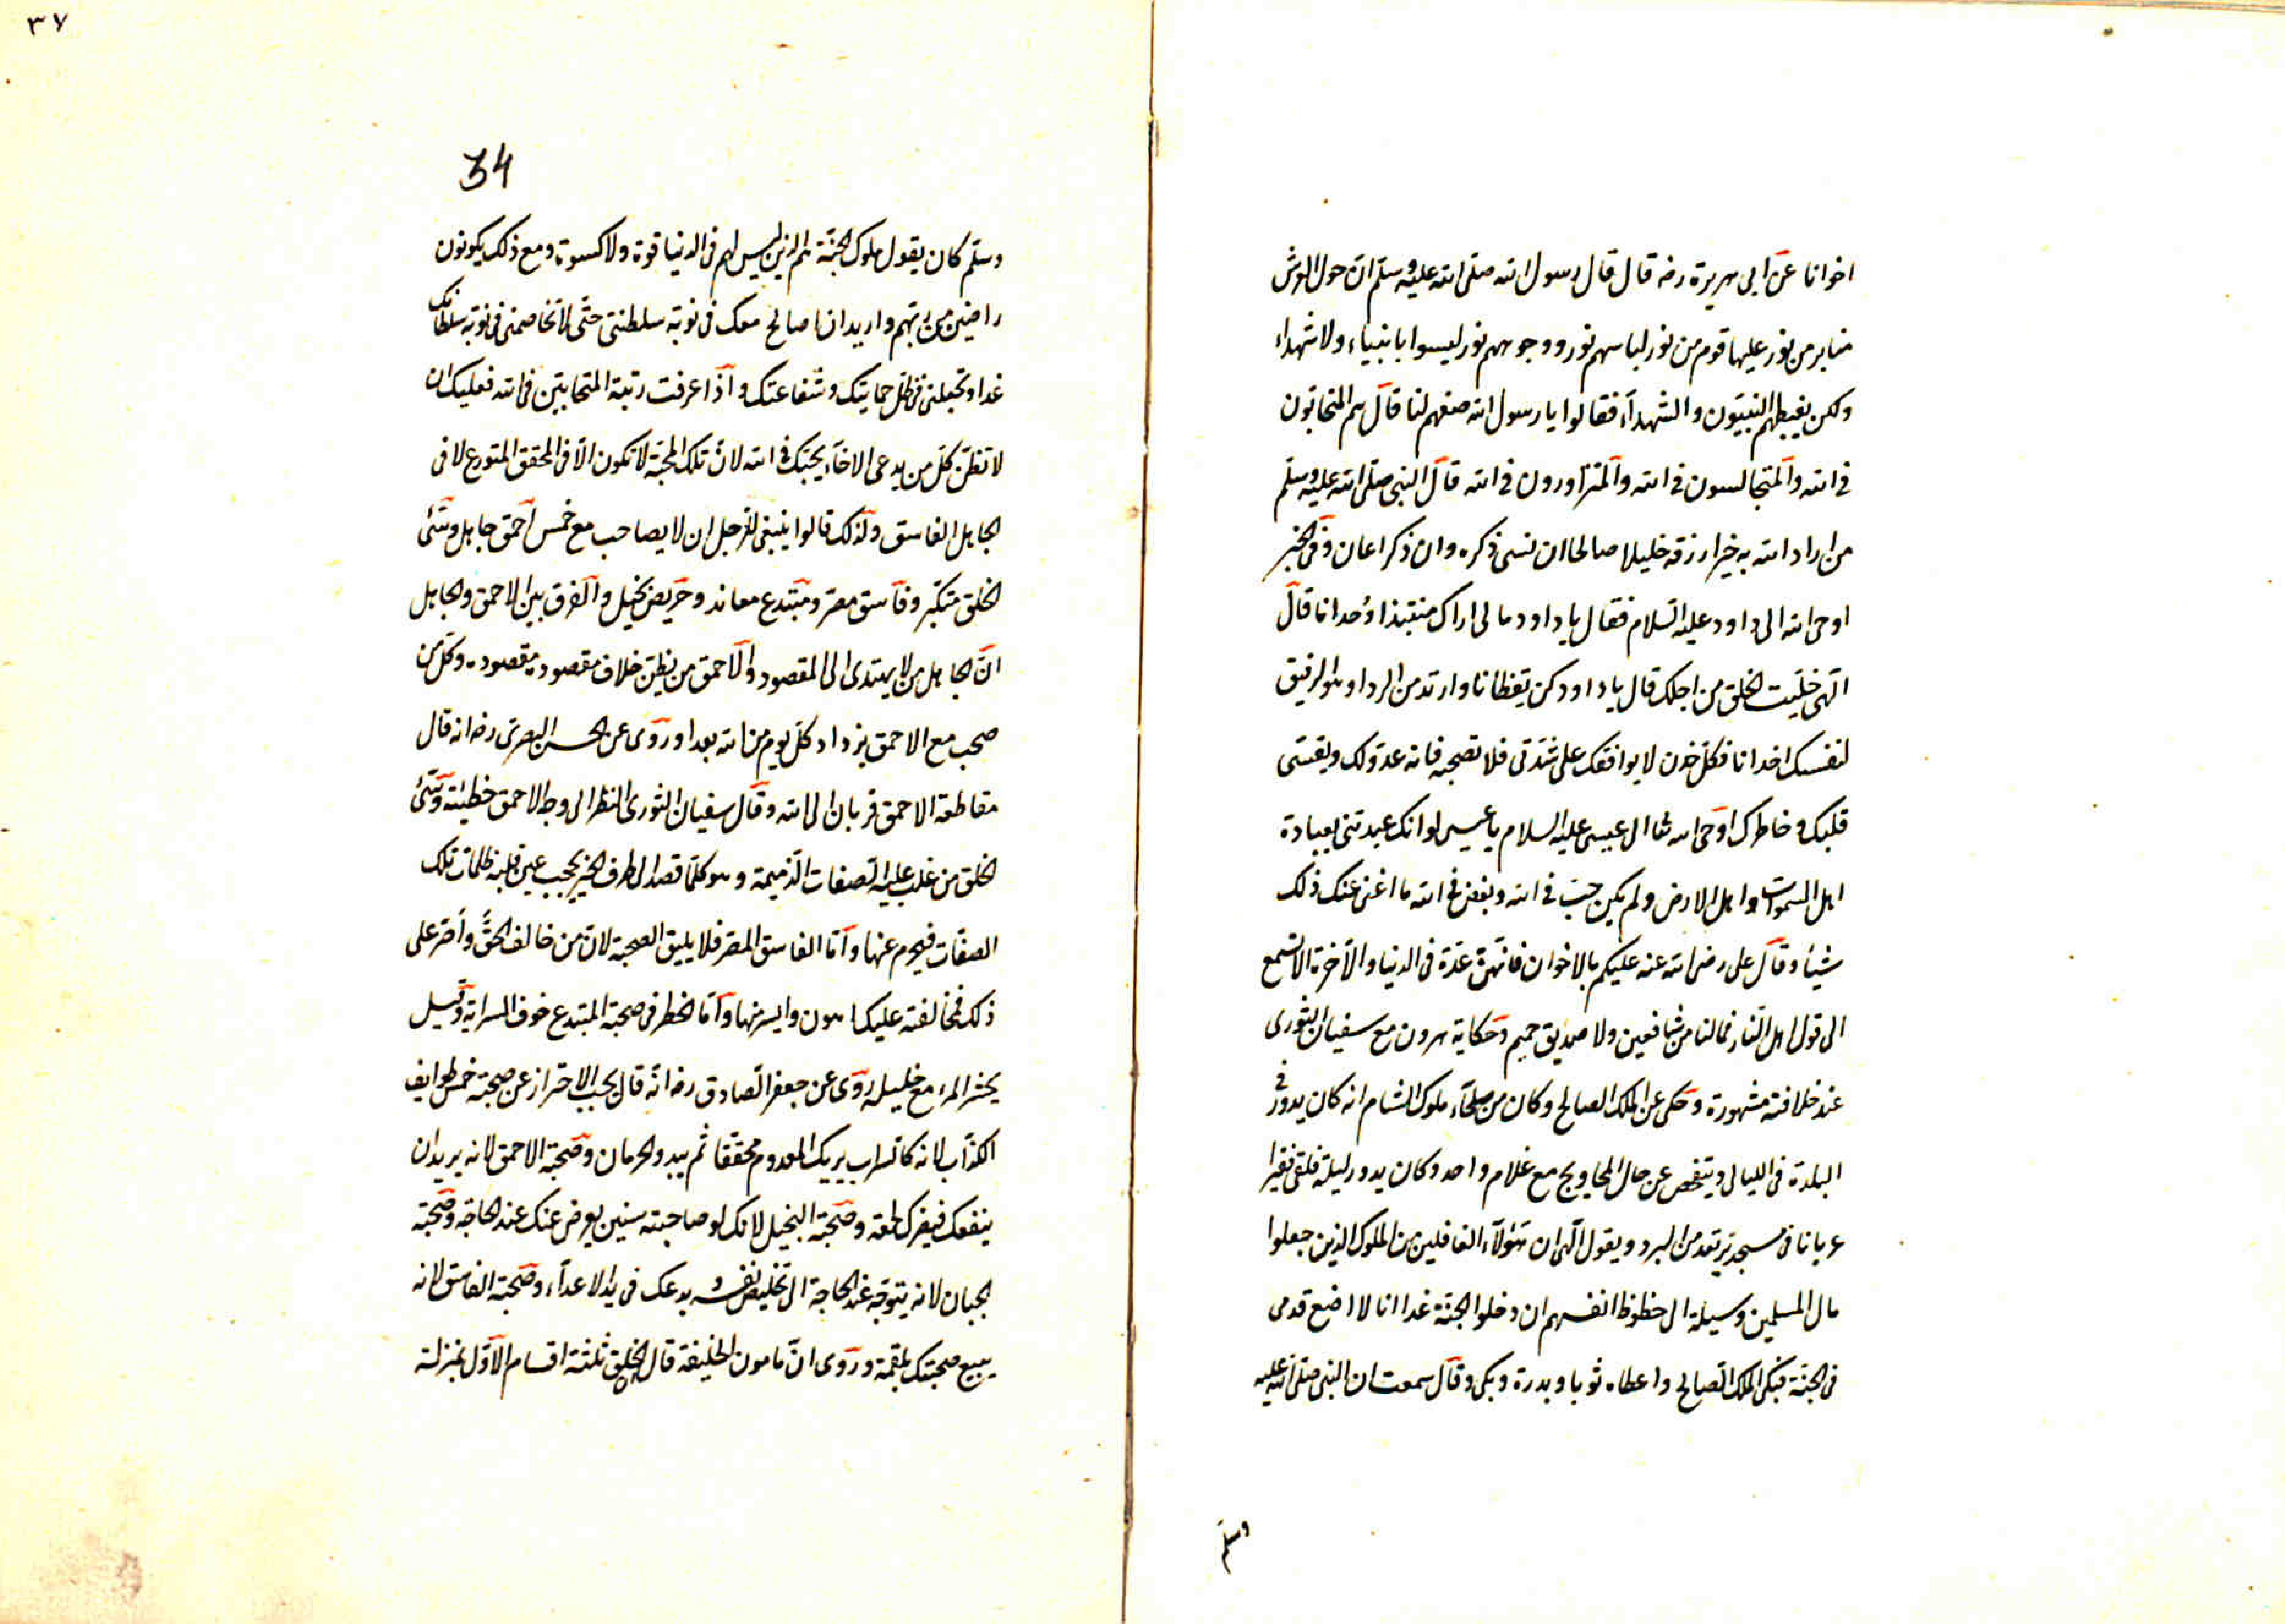 اخوانا عن ابى هريرة رضه قال قال رسول الله صلى الله عليه وسلم ان حول العرش
منابر من نور عليها قوم من نور لباسهم نور ووجوههم نور ليسوا بانبياء ولا شهداء
ولكن يغبطهم النبيون والشهداء فقالوا يا رسول الله صفهم لنا قال هم المتحابون
فى الله والمتجالسون فى الله والمتزاورون فى الله قال النبى صلى الله عليه وسلم
من اراد الله به خيرا رزقه خليلا صالحا ان نسى ذكره وان ذكر اعان وفى الخبر
اوحى الله الى داود عليه السلام فقال يا داود مالى اراك منتبذا وحدانا قال
الهى خليت الخلق من اجلك قال يا داود كن يقظانا وارتد من الرداو هو الرفيق
لنفسك اخدانا فكل خدن لا يوافقك على شدتى فلا تصحبه فانه عدو لك ويقسى
قلبك وخاطرك اوحى الله تعا الى عيسى عليه السلام يا عيسى لو انك عبدتنى بعبادة
اهل السموات واهل الارض ولم يكن حب فى الله وبغض فى الله ما اغنى عنك ذلك
شيئا وقال على رضى الله عنه عليكم بالاخوان فانهم عدة فى الدنيا والآخرة الا تسمع
الى قول اهل النار فمالنا من شافعين ولا صديق حميم وحكاية هرون مع سفيان الثورى
عند خلافته مشهورة وحكى عن الملك الصالح وكان من صلحاء ملوك الشام انه كان يدور فى
البلدة فى الليالى ويتفحص عن حال المحاويج مع غلام واحد وكان يدور ليلة فلقى فقيرا
عريانا فى مسجد يرتعد من البرد ويقول الهى ان هؤلاء الغافلين من الملوك الذين جعلوا
مال المسلمين وسيلة الى حظوظ انفسهم ان دخلوا الجنة غدا انا لا اضع قدمى
فى الجنة فبكى الملك الصالح واعطاه ثوبا وبدرة وبكى وقال سمعت ان النبى صلى الله عليه
وسلم
٣٧
34
وسلم كان يقول ملوك الجنة هم الذين ليس لهم فى الدنيا قوة ولا كسوة ومع ذلك يكونون
راضين من ربهم واريد ان اصالح معك فى نوبة سلطنتى حتى لا تخاصمنى فى نوبة سلطانك
غدا وتجعلنى فى ظل حمايتك وشفاعتك واذا عرفت رتبة المتحابين فى الله فعليك ان
لا تظن كل من يدعى الاخاء يحبك فى الله لان تلك المحبة لا تكون الا فى المحقق المتورع لا فى
الجاهل الفاسق ولذلك قالوا ينبغى للرجل ان لا يصاحب مع خمس احمق جاهل وسئ
الخلق متكبر وفاسق مصر ومبتدع معاند وحريص بخيل والفرق بين الاحمق والجاهل
ان الجاهل من لا يهتدى الى المقصود والاحمق من يظن خلاف مقصوده مقصوده وكل من
صحب مع الاحمق يزداد كل يوم من الله بعدا وروى عن الحسن البصرى رضه انه قال
مقاطعة الاحمق قربان الى الله وقال سفيان الثورى النظر الى وجه الاحمق خطيئة وسئ
الخلق من غلب عليه الصفات الذميمة وهو كلما قصد الى طرف الخير يحجب عين قلبه ظلمات تلك
الصفات فيحرم عنها واما الفاسق المصر فلا يليق الصحبة لان من خالف الحق واصر على
ذلك فمخالفته عليك اهون وايسر منها واما الخطر فى صحبة المبتدع خوف السراية وقيل
يحشر المرء مع خليله روى عن جعفر الصادق رضه انه قال يجب الاحتراز عن صحبة خمس طوايف
الكذاب لانه كالسراب يريك المعدوم محققا ثم يبدو الحرمان وصحبة الاحمق لانه يريد ان
ينفعك فيضرك لحمقه وصحبة البخيل لانك لو صاحبته سنين يعرض عنك عند الحاجة وصحبة
الجبان لانه يتوجه عند الحاجة الى تخليص نفسه ويدعك فى يد الاعداء وصحبة الفاسق لانه
يبيع صحبتك بلقمة وروى ان مامون الخليفة قال الخلق ثلثة اقسام الاول بمنزلة